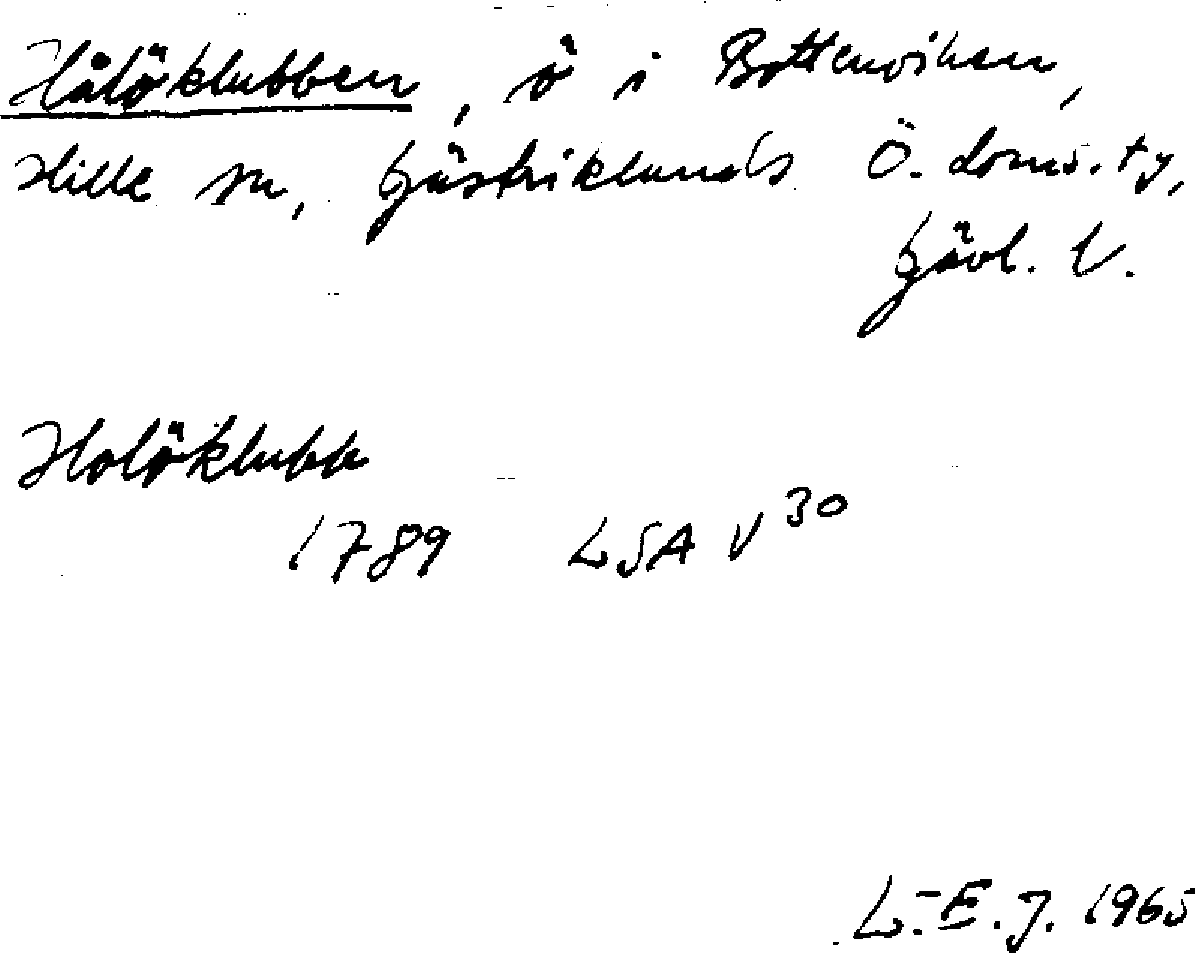 Hålöklubben, ö i Bottenviken,
Hille sn, Gästriklands Ö. doms. ty,
Gävl. l.
Holöklubb
1789 LSA V 30
L.-E. J. 1965